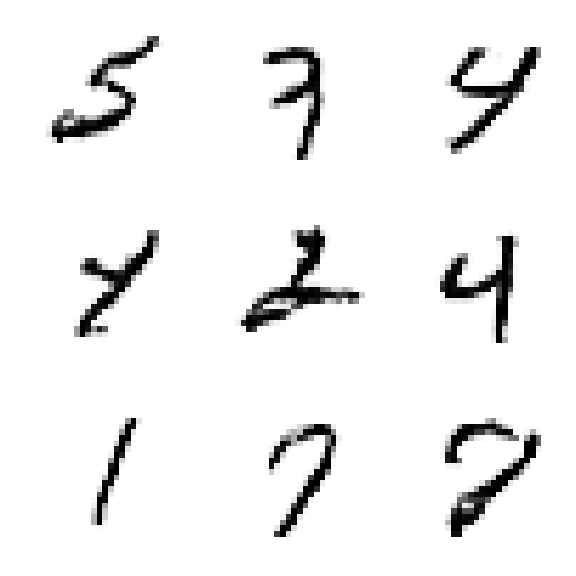 5 7 4
2 4
1 7 8